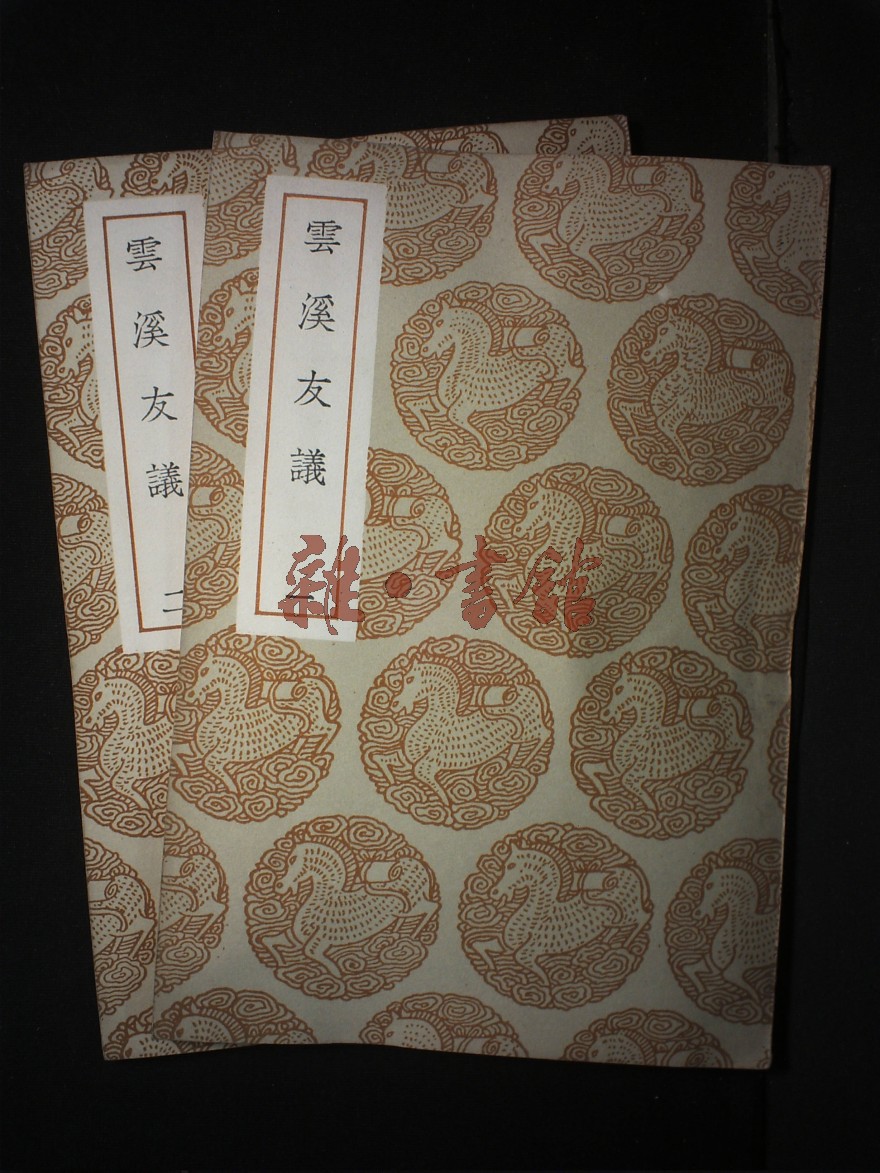 雲溪友議 一
雲溪友議 二
雜·書館